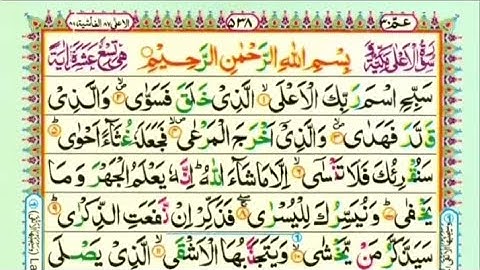 عمّ ٣٠
٥٣٨
الاعلى ٨٧ الغاشية
سُوْرَةُ الْاَعْلٰى مَكِّيَّةٌ وَّ
بِسْمِ اللّٰهِ الرَّحْمٰنِ الرَّحِيْمِ
هِيَ تِسْعَ عَشْرَةَ اٰيَةً
سَبِّحِ اسْمَ رَبِّكَ الْاَعْلَى ۙ الَّذِىْ خَلَقَ فَسَوّٰى ۙ وَالَّذِىْ
قَدَّرَ فَهَدٰى ۙ وَالَّذِىْۤ اَخْرَجَ الْمَرْعٰى ۙ فَجَعَلَهٗ غُثَآءً اَحْوٰى ؕ
سَنُقْرِئُكَ فَلَا تَنْسٰٓى ۙ اِلَّا مَاشَآءَ اللّٰهُ ؕ اِنَّهٗ يَعْلَمُ الْجَهْرَ وَمَا
يَخْفٰى ؕ وَنُيَسِّرُكَ لِلْيُسْرٰى ۚ فَذَكِّرْ اِنْ نَّفَعَتِ الذِّكْرٰى ؕ
سَيَذَّكَّرُ مَنْ يَّخْشٰى ۙ وَيَتَجَنَّبُهَا الْاَشْقَى ۙ الَّذِىْ يَصْلَى